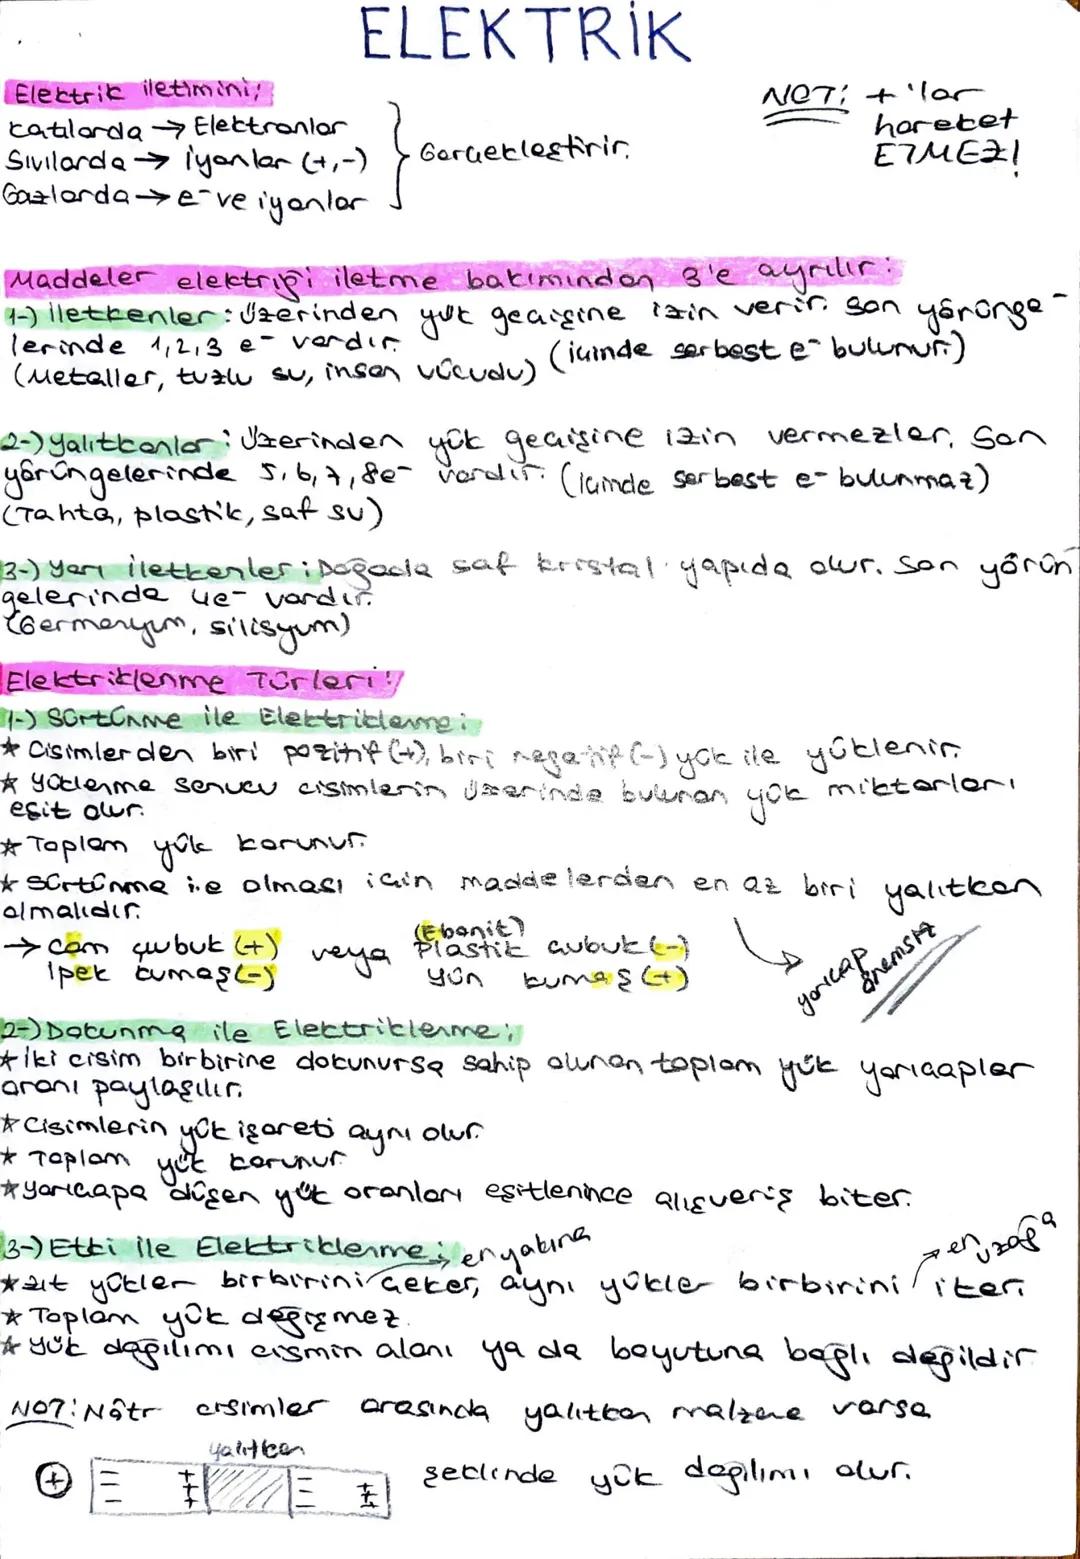 ELEKTRİK
Elektrik iletimini;
katılarda → Elektronlar
Sıvılarda → iyonlar (+,-)
Gazlarda → e⁻ ve iyonlar
Gerçekleştirir.
NOT: +'lar
hareket
ETMEZ!
Maddeler elektriği iletme bakımından 3'e ayrılır:
1-) İletkenler: Üzerinden yük geçişine izin verir. Son yörünge-
lerinde 1,2,3 e⁻ vardır. (içinde serbest e⁻ bulunur.)
(Metaller, tuzlu su, insan vücudu)
2-) Yalıtkanlar: Üzerinden yük geçişine izin vermezler. Son
yörüngelerinde 5,6,7,8e⁻ vardır. (içinde serbest e⁻ bulunmaz)
(Tahta, plastik, saf su)
3-) Yarı iletkenler: Doğada saf kristal yapıda olur. Son yörün
gelerinde 4e⁻ vardır.
(Germanyum, silisyum)
Elektriklenme Türleri:
1-) Sürtünme ile Elektriklenme:
* Cisimlerden biri pozitif (+), biri negatif (-) yük ile yüklenir.
* Yüklenme sonucu cisimlerin üzerinde bulunan yük miktarları
eşit olur.
* Toplam yük korunur.
* Sürtünme ile olması için maddelerden en az biri yalıtkan
olmalıdır.
yarıçap
önemsiz
→ cam çubuk (+) veya (Ebonit)
Plastik çubuk (-)
ipek kumaş (-) yün kumaş (+)
2-) Dokunma ile Elektriklenme;
* İki cisim birbirine dokunursa sahip olunan toplam yük yarıçaplar
oranı paylaşılır.
* Cisimlerin yük işareti aynı olur.
* Toplam yük korunur.
* Yarıçapa düşen yük oranları eşitlenince alışveriş biter.
3-) Etki ile Elektriklenme: en yakına en uzağa
* zıt yükler birbirini çeker, aynı yükler birbirini iter.
* Toplam yük değişmez.
* Yük dağılımı cismin alanı ya da boyutuna bağlı değildir
NOT: Nötr cisimler arasında yalıtkan malzeme varsa
yalıtkan
+ --- +++ --- +++ şeklinde yük dağılımı olur.